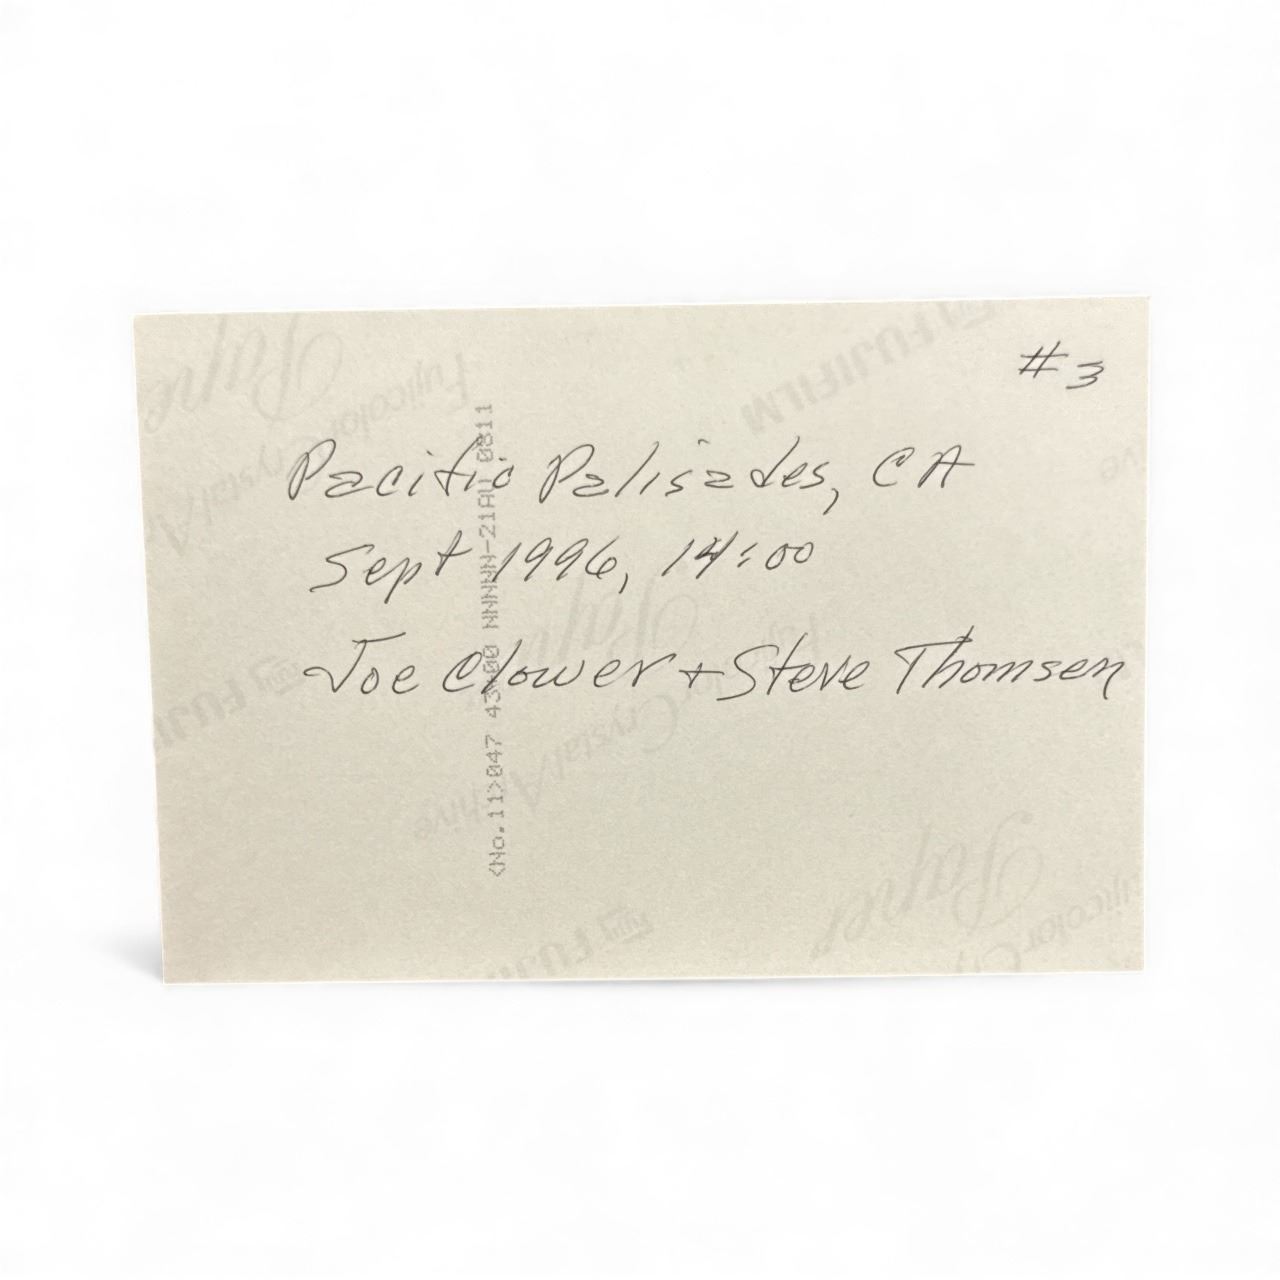 #3
Pacific Palisades, CA
Sept 1996, 14:00
Joe Clower + Steve Thomsen
<No.11>047 43 00 NNNNN-21AU 0811
FUJIFILM
Fujicolor Crystal Archive
Paper